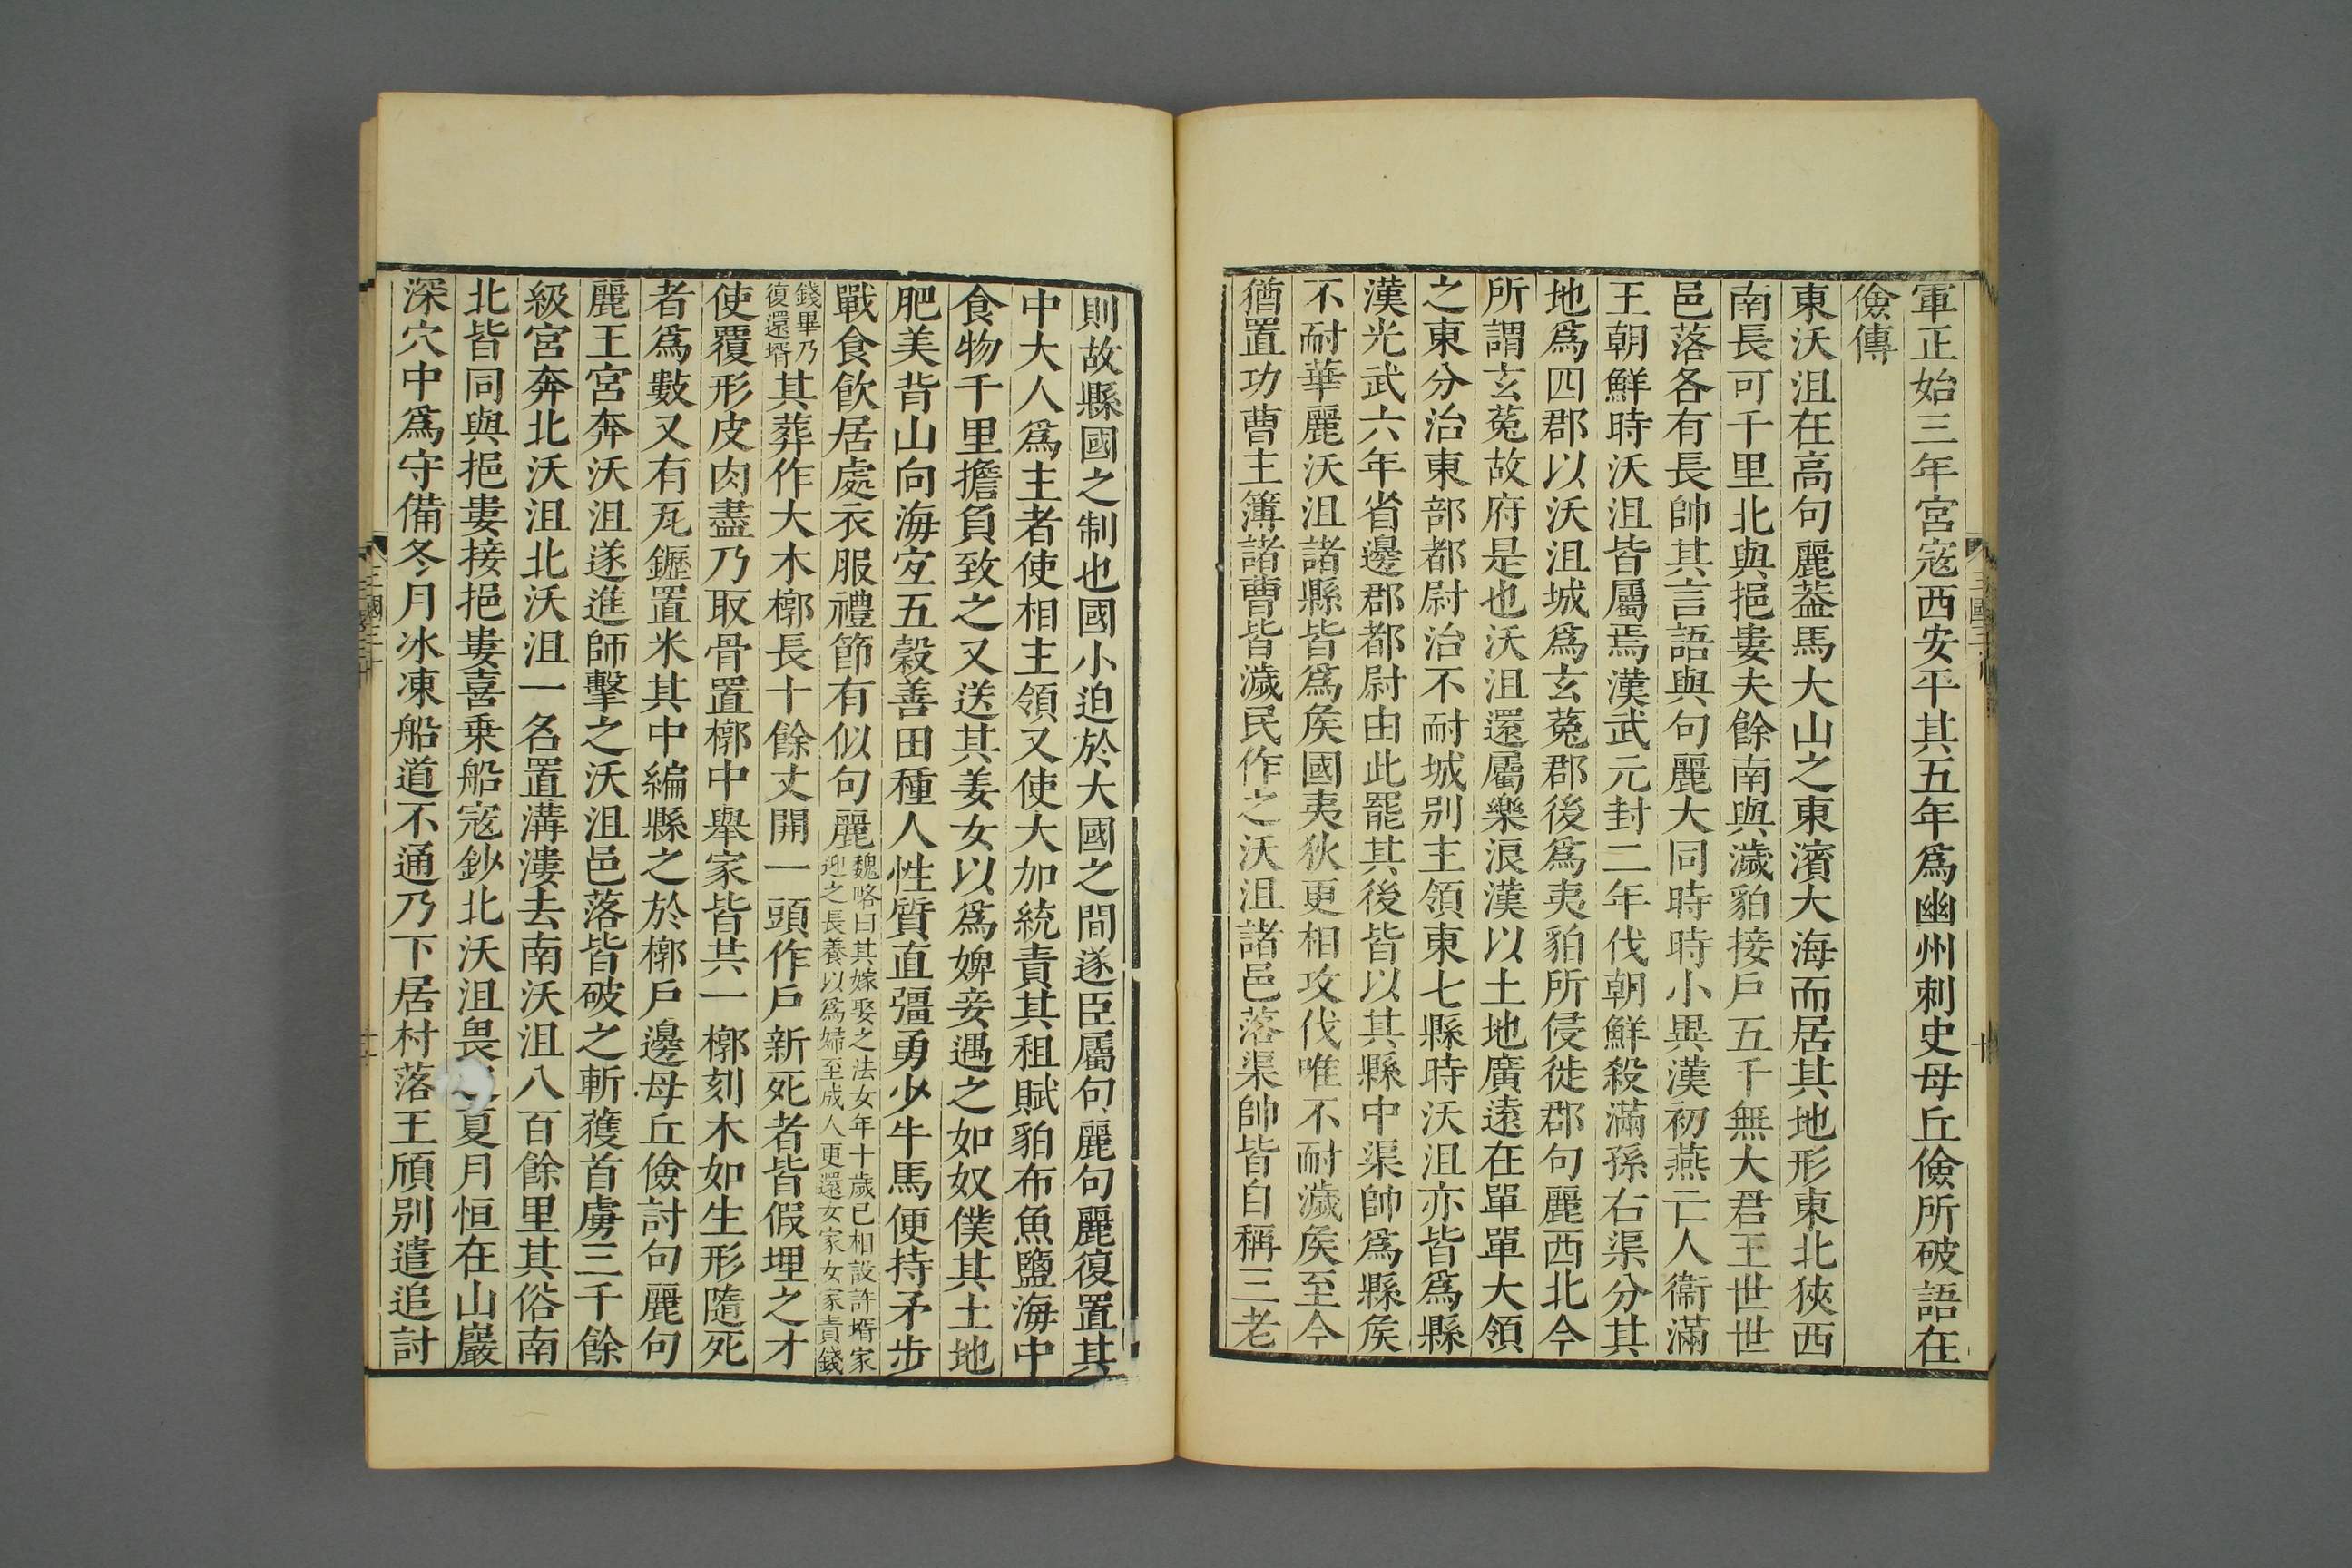 軍正始三年宮寇西安平其五年爲幽州刺史毋丘儉所破語在
儉傳
東沃沮在高句麗葢馬大山之東濱大海而居其地形東北狹西
南長可千里北與挹婁夫餘南與濊貊接戶五千無大君王世世
邑落各有長帥其言語與句麗大同時時小異漢初燕亡人衞滿
王朝鮮時沃沮皆屬焉漢武元封二年伐朝鮮殺滿孫右渠分其
地爲四郡以沃沮城爲玄菟郡後爲夷貊所侵徙郡句麗西北今
所謂玄菟故府是也沃沮還屬樂浪漢以土地廣遠在單單大領
之東分治東部都尉治不耐城别主領東七縣時沃沮亦皆爲縣
漢光武六年省邊郡都尉由此罷其後皆以其縣中渠帥爲縣矦
不耐華麗沃沮諸縣皆爲矦國夷狄更相攻伐唯不耐濊矦至今
猶置功曹主簿諸曹皆濊民作之沃沮諸邑落渠帥皆自稱三老
則故縣國之制也國小迫於大國之間遂臣屬句麗句麗復置其
中大人爲主者使相主領又使大加統責其租賦貊布魚鹽海中
食物千里擔負致之又送其美女以爲婢妾遇之如奴僕其土地
肥美背山向海宐五穀善田種人性質直彊勇少牛馬便持矛步
戰食飲居處衣服禮節有似句麗魏略曰其嫁娶之法女年十歲已相設許壻家
迎之長養以爲婦至成人更還女家女家責錢
錢畢乃
復還壻其葬作大木槨長十餘丈開一頭作戶新死者皆假埋之才
使覆形皮肉盡乃取骨置槨中舉家皆共一槨刻木如生形隨死
者爲數又有瓦䥶置米其中編縣之於槨戶邊毋丘儉討句麗句
麗王宮奔沃沮遂進師擊之沃沮邑落皆破之斬獲首虜三千餘
級宮奔北沃沮北沃沮一名置溝漊去南沃沮八百餘里其俗南
北皆同與挹婁接挹婁喜乗船寇鈔北沃沮畏夏月恒在山巖
深穴中爲守備冬月冰凍船道不通乃下居村落王頎别遣追討